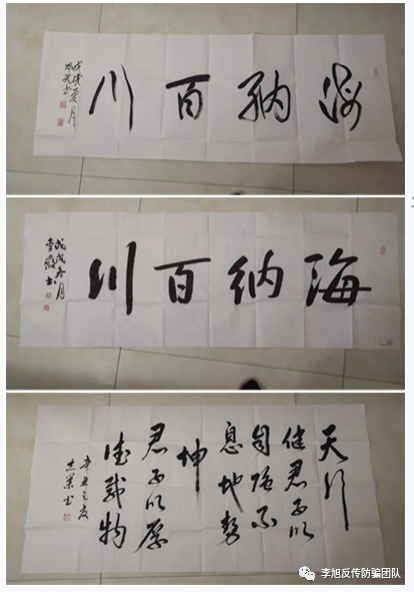 海纳百川
戊戌夏月
海纳百川
戊戌冬月
天行
健君子以
自强不
息地势
坤
君子以厚
德载物
辛丑之夏
李旭反传防骗团队